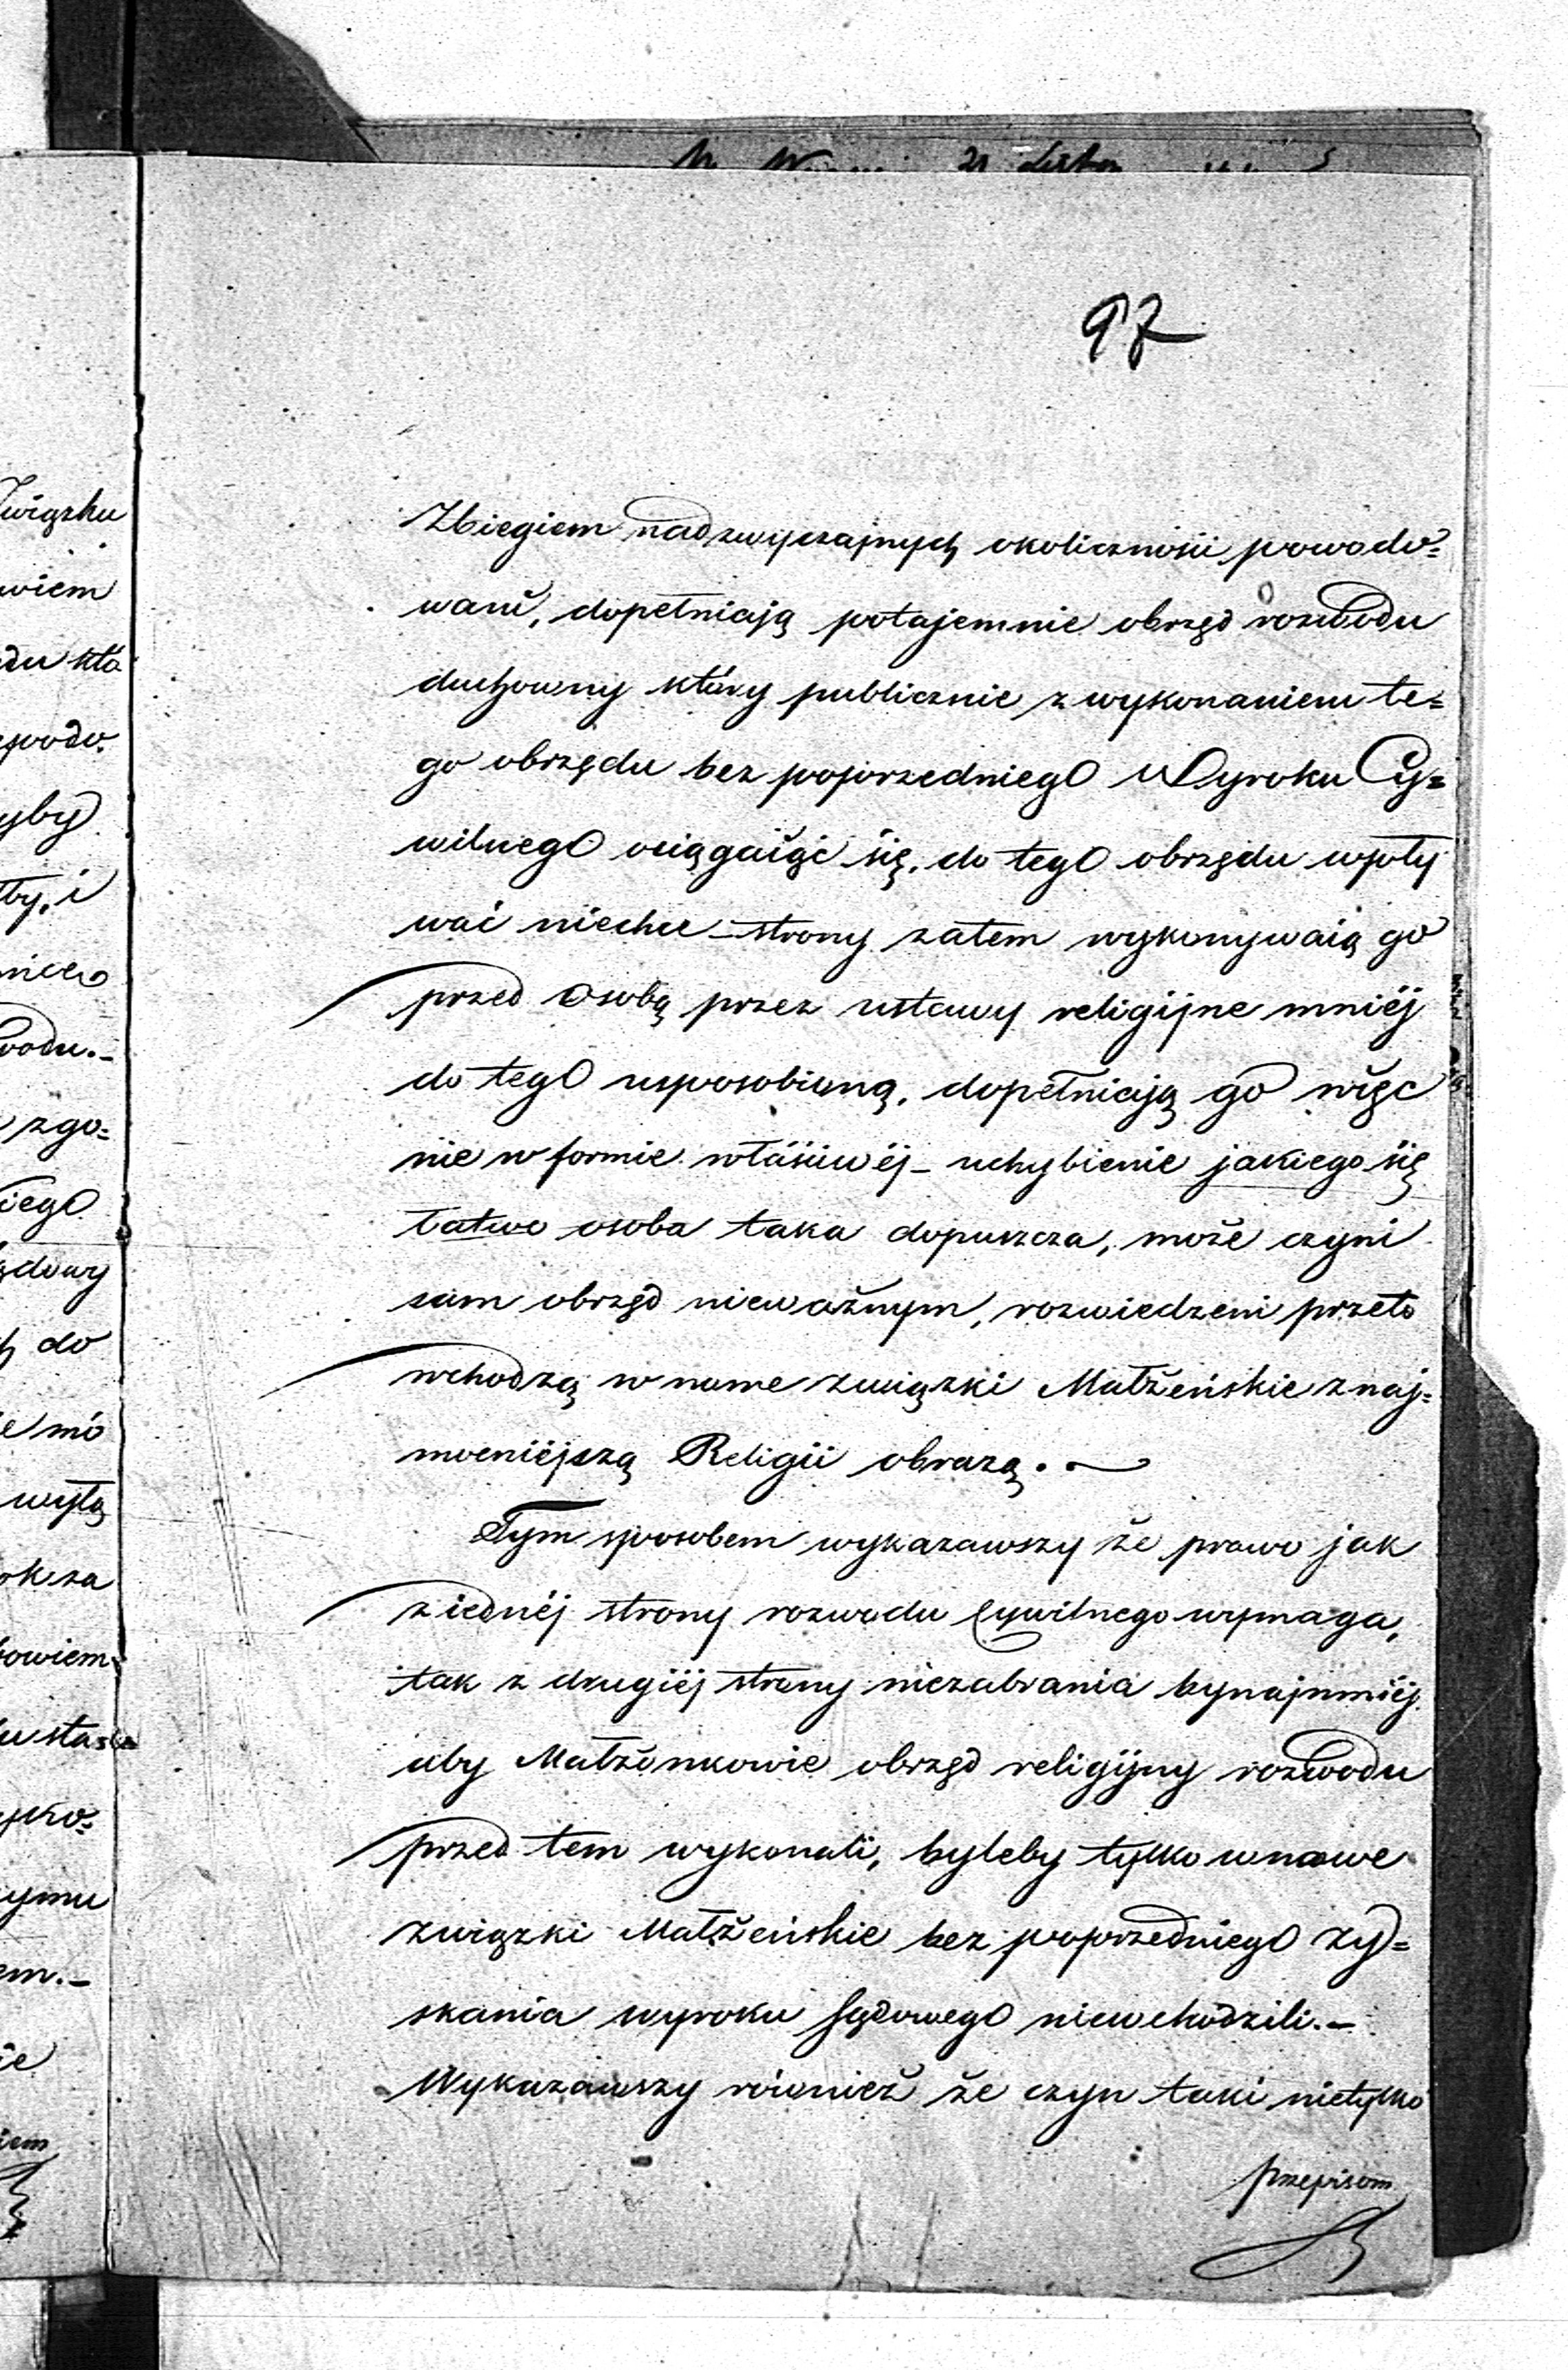 97
Zbiegiem nadzwyczajnych okoliczności powodo=
wani, dopełniają potajemnie obrzęd rozwodu
duchowny który publicznie z wykonaniem te=
go obrzędu bez poprzedniego Wyroku Cy=
wilnego ociągaiąc się, do tego obrzędu wpły
wać niechce – strony zatem wykonywaią go
przed Osobą przez ustawy religijne mniéj
do tego usposobioną, dopełniają go więc
nie w formie właściwéj – uchybienie jakiego się
łatwo osoba taka dopuszcza, może czyni
sam obrzęd nieważnym, rozwiedzeni przeto
wchodzą w nowe związki Małżeńskie z naj=
mocniéjszą Religii obrazą. –
Tym sposobem wykazawszy że prawo jak
z iednéj strony rozwodu Cywilnego wymaga,
tak z drugiéj strony niezabrania bynajmniéj
aby Małżonkowie obrzęd religijny rozwodu
przed tem wykonali, byleby tylko w nowe
związki Małżeńskie bez poprzedniego zy=
skania wyroku Sądowego niewchodzili. –
Wykazawszy również że czyn taki nietylko
przepisom
Związku
wiem
yby
zgo=
do
wyłą
ok za
bowiem